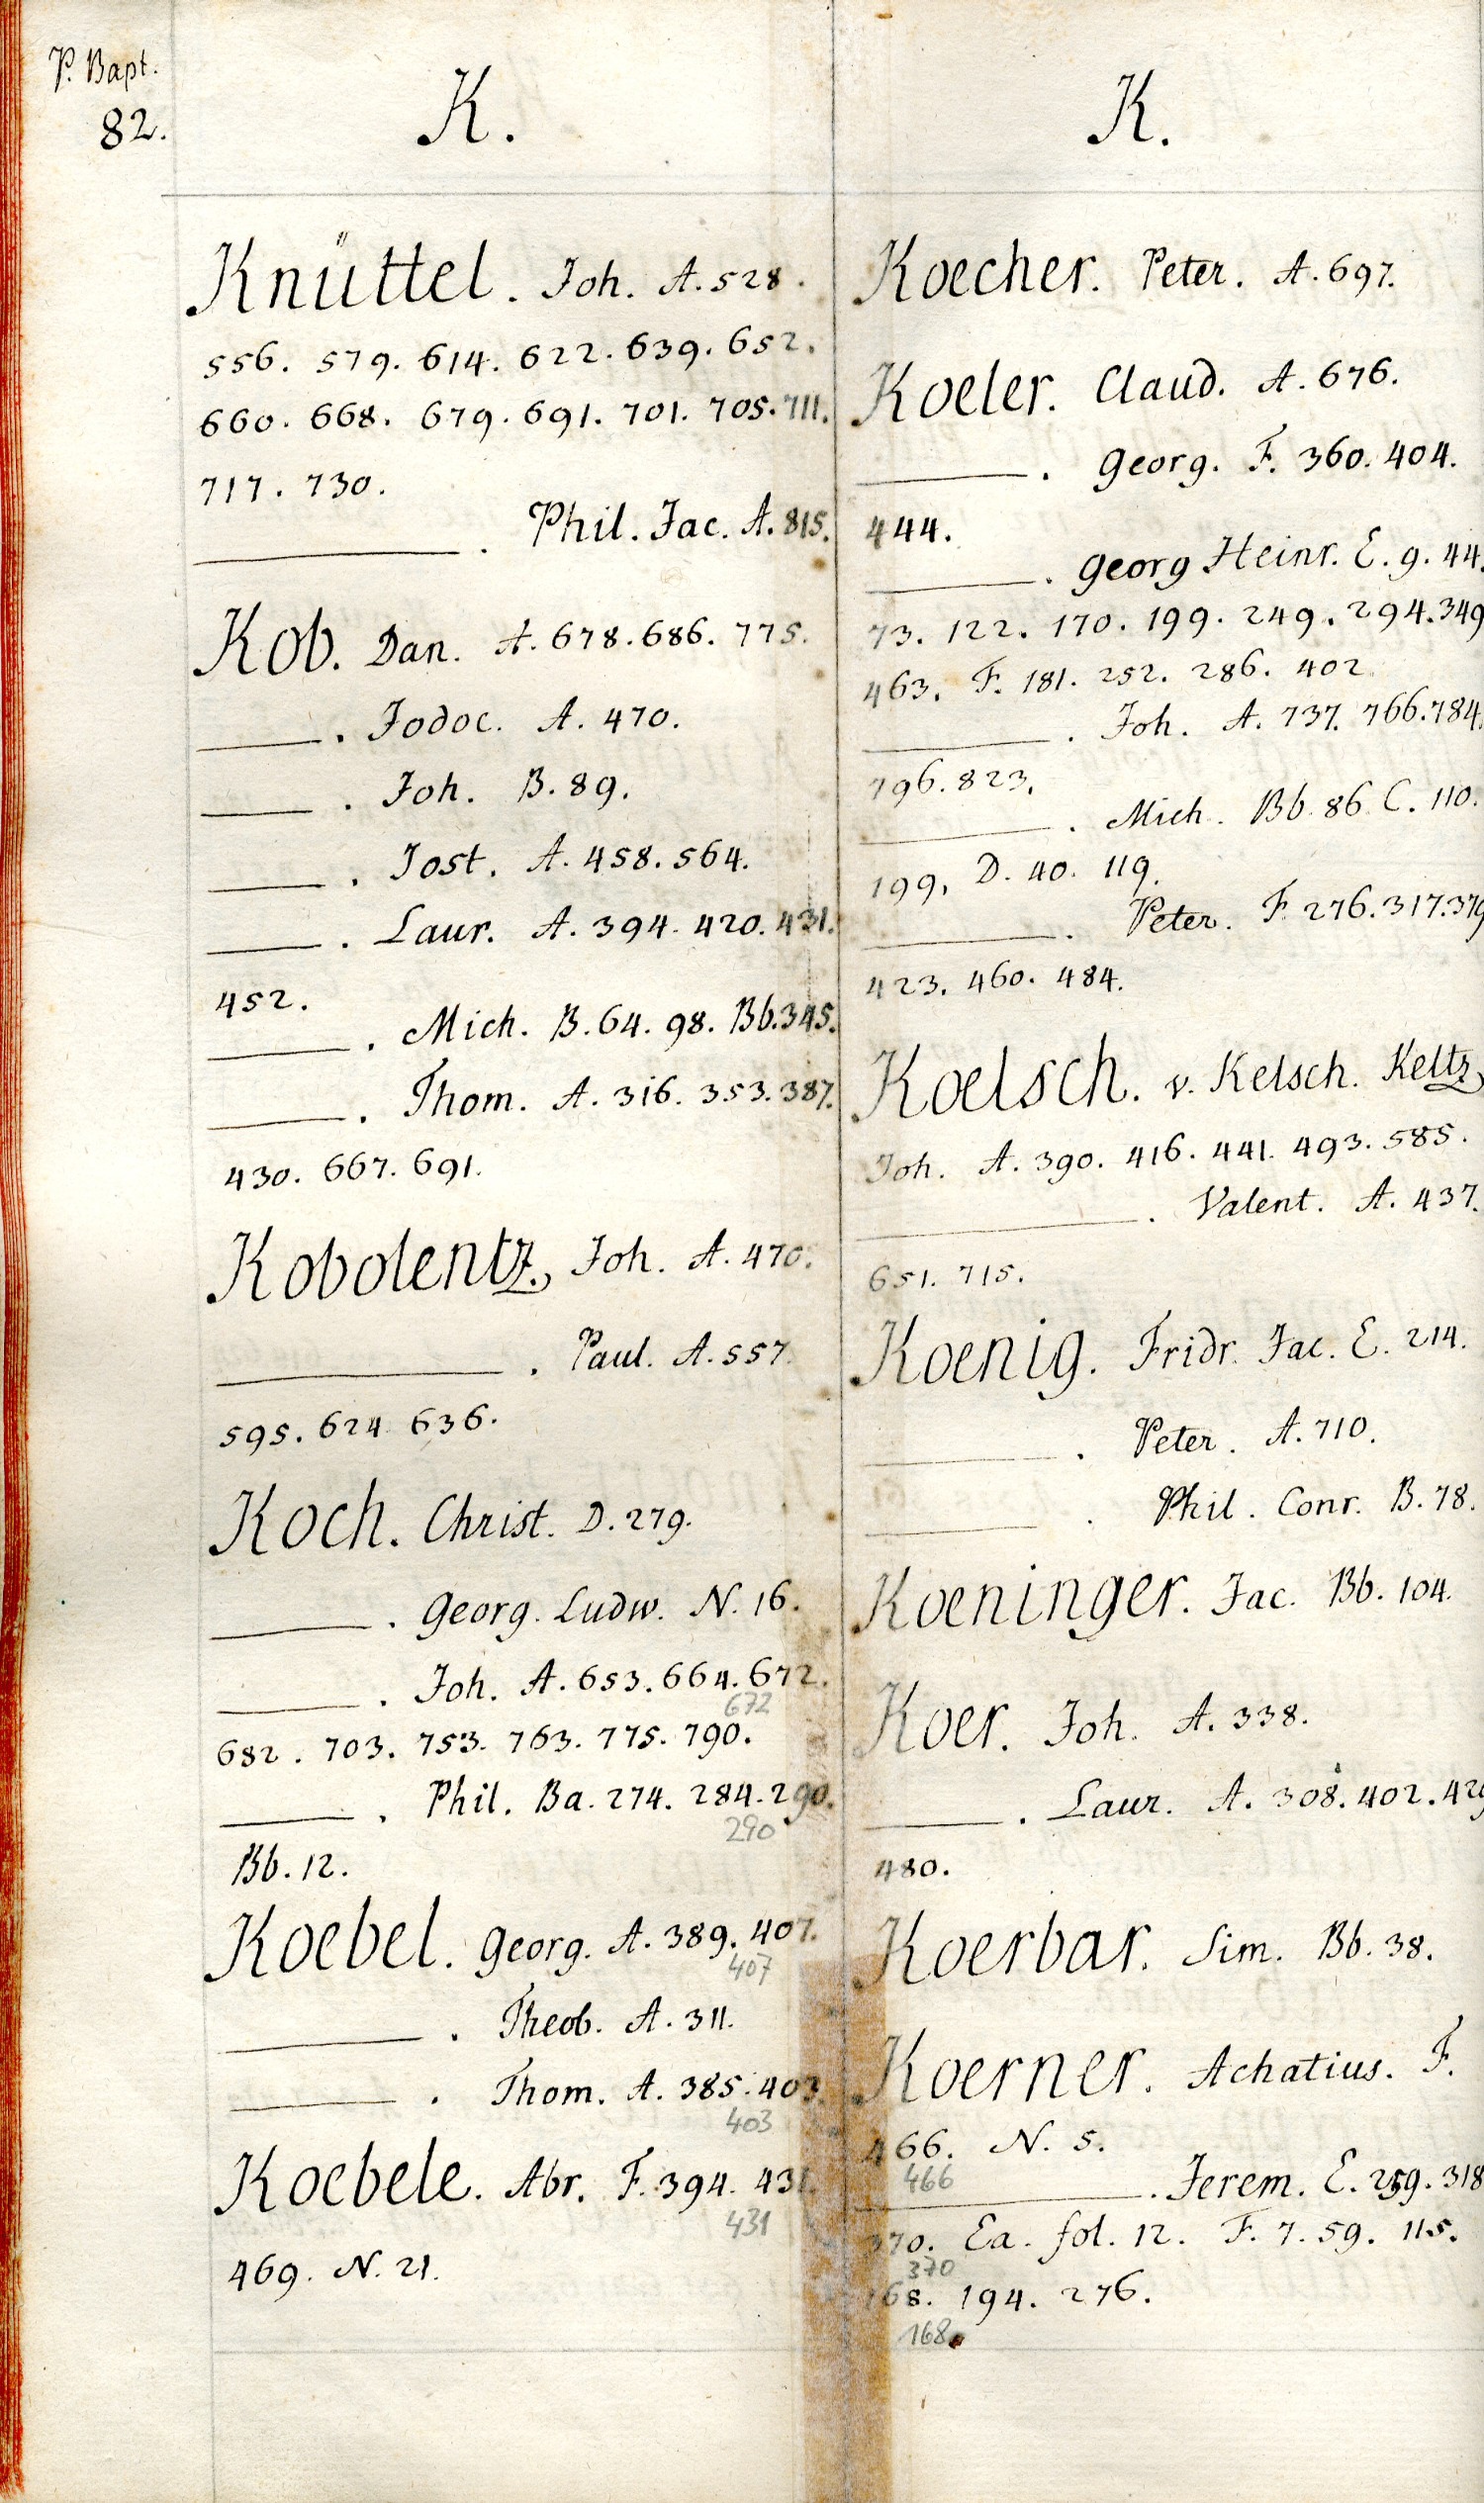 P. Bapt.
82.
K.
Knüttel. Joh. A. 528.
556. 579. 614. 622. 639. 652.
660. 668. 679. 691. 701. 705. 711.
717. 730.
———. Phil. Jac. A. 815.
Kob. Dan. A. 678. 686. 775.
———. Jodoc. A. 470.
———. Joh. B. 89.
———. Jost. A. 458. 564.
———. Laur. A. 394. 420. 431.
452.
———. Mich. B. 64. 98. Bb. 345.
———. Thom. A. 316. 353. 387.
430. 667. 691.
Kobolentz. Joh. A. 470.
———. Paul. A. 557.
595. 624. 636.
Koch. Christ. D. 279.
———. Georg. Ludw. N. 16.
———. Joh. A. 653. 664. 672.
672
682. 703. 753. 763. 775. 790.
———. Phil. Ba. 274. 284. 290.
290
Bb. 12.
Koebel. Georg. A. 389. 407.
407
———. Theob. A. 311.
———. Thom. A. 385. 403.
403
Koebele. Abr. F. 394. 431.
431
469. N. 21.
K.
Koecher. Peter. A. 697.
Koeler. Claud. A. 676.
———. Georg. F. 360. 404.
444.
———. Georg Heinr. E. 9. 44.
73. 122. 170. 199. 249. 294. 349
463. F. 181. 252. 286. 402
———. Joh. A. 737. 766. 784.
796. 823.
———. Mich. Bb. 86. C. 110.
199. D. 40. 119.
———. Peter. F. 276. 317. 379
423. 460. 484.
Koelsch. v. Kelsch. Keltz
Joh. A. 390. 416. 441. 493. 585.
———. Valent. A. 437.
651. 715.
Koenig. Fridr. Jac. E. 214.
———. Peter. A. 710.
———. Phil. Conr. B. 78.
Koeninger. Jac. Bb. 104.
Koer. Joh. A. 338.
———. Laur. A. 308. 402. 429
480.
Koerbar. Sim. Bb. 38.
Koerner. Achatius. F.
466. N. 5.
466
———. Jerem. E. 259. 318
370. Ea. fol. 12. F. 7. 59. 115.
370
168. 194. 276.
168.